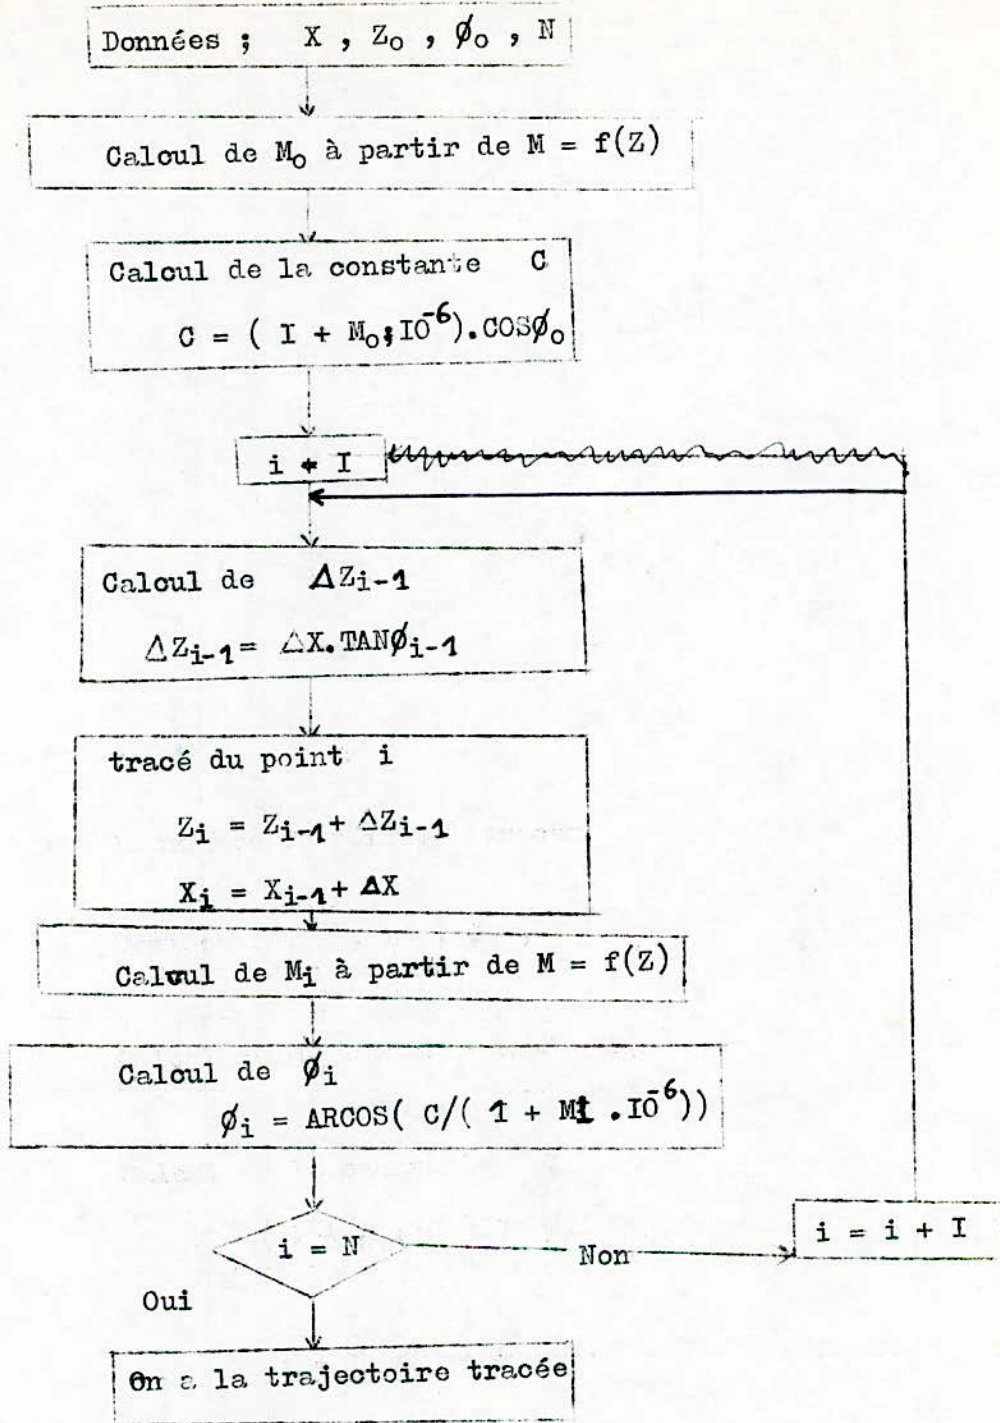 Données ; X , Z₀ , ø₀ , N
Calcul de M₀ à partir de M = f(Z)
Calcul de la constante C
C = ( I + M₀.I0⁻⁶).COSø₀
i = I
Calcul de ΔZi-1
ΔZi-1= ΔX.TANøi-1
tracé du point i
Zi = Zi-1+ ΔZi-1
Xi = Xi-1+ ΔX
Calcul de Mi à partir de M = f(Z)
Calcul de øi
øi = ARCOS( C/( 1 + Mi .I0⁻⁶))
i = N
Non
i = i + I
Oui
On a la trajectoire tracée